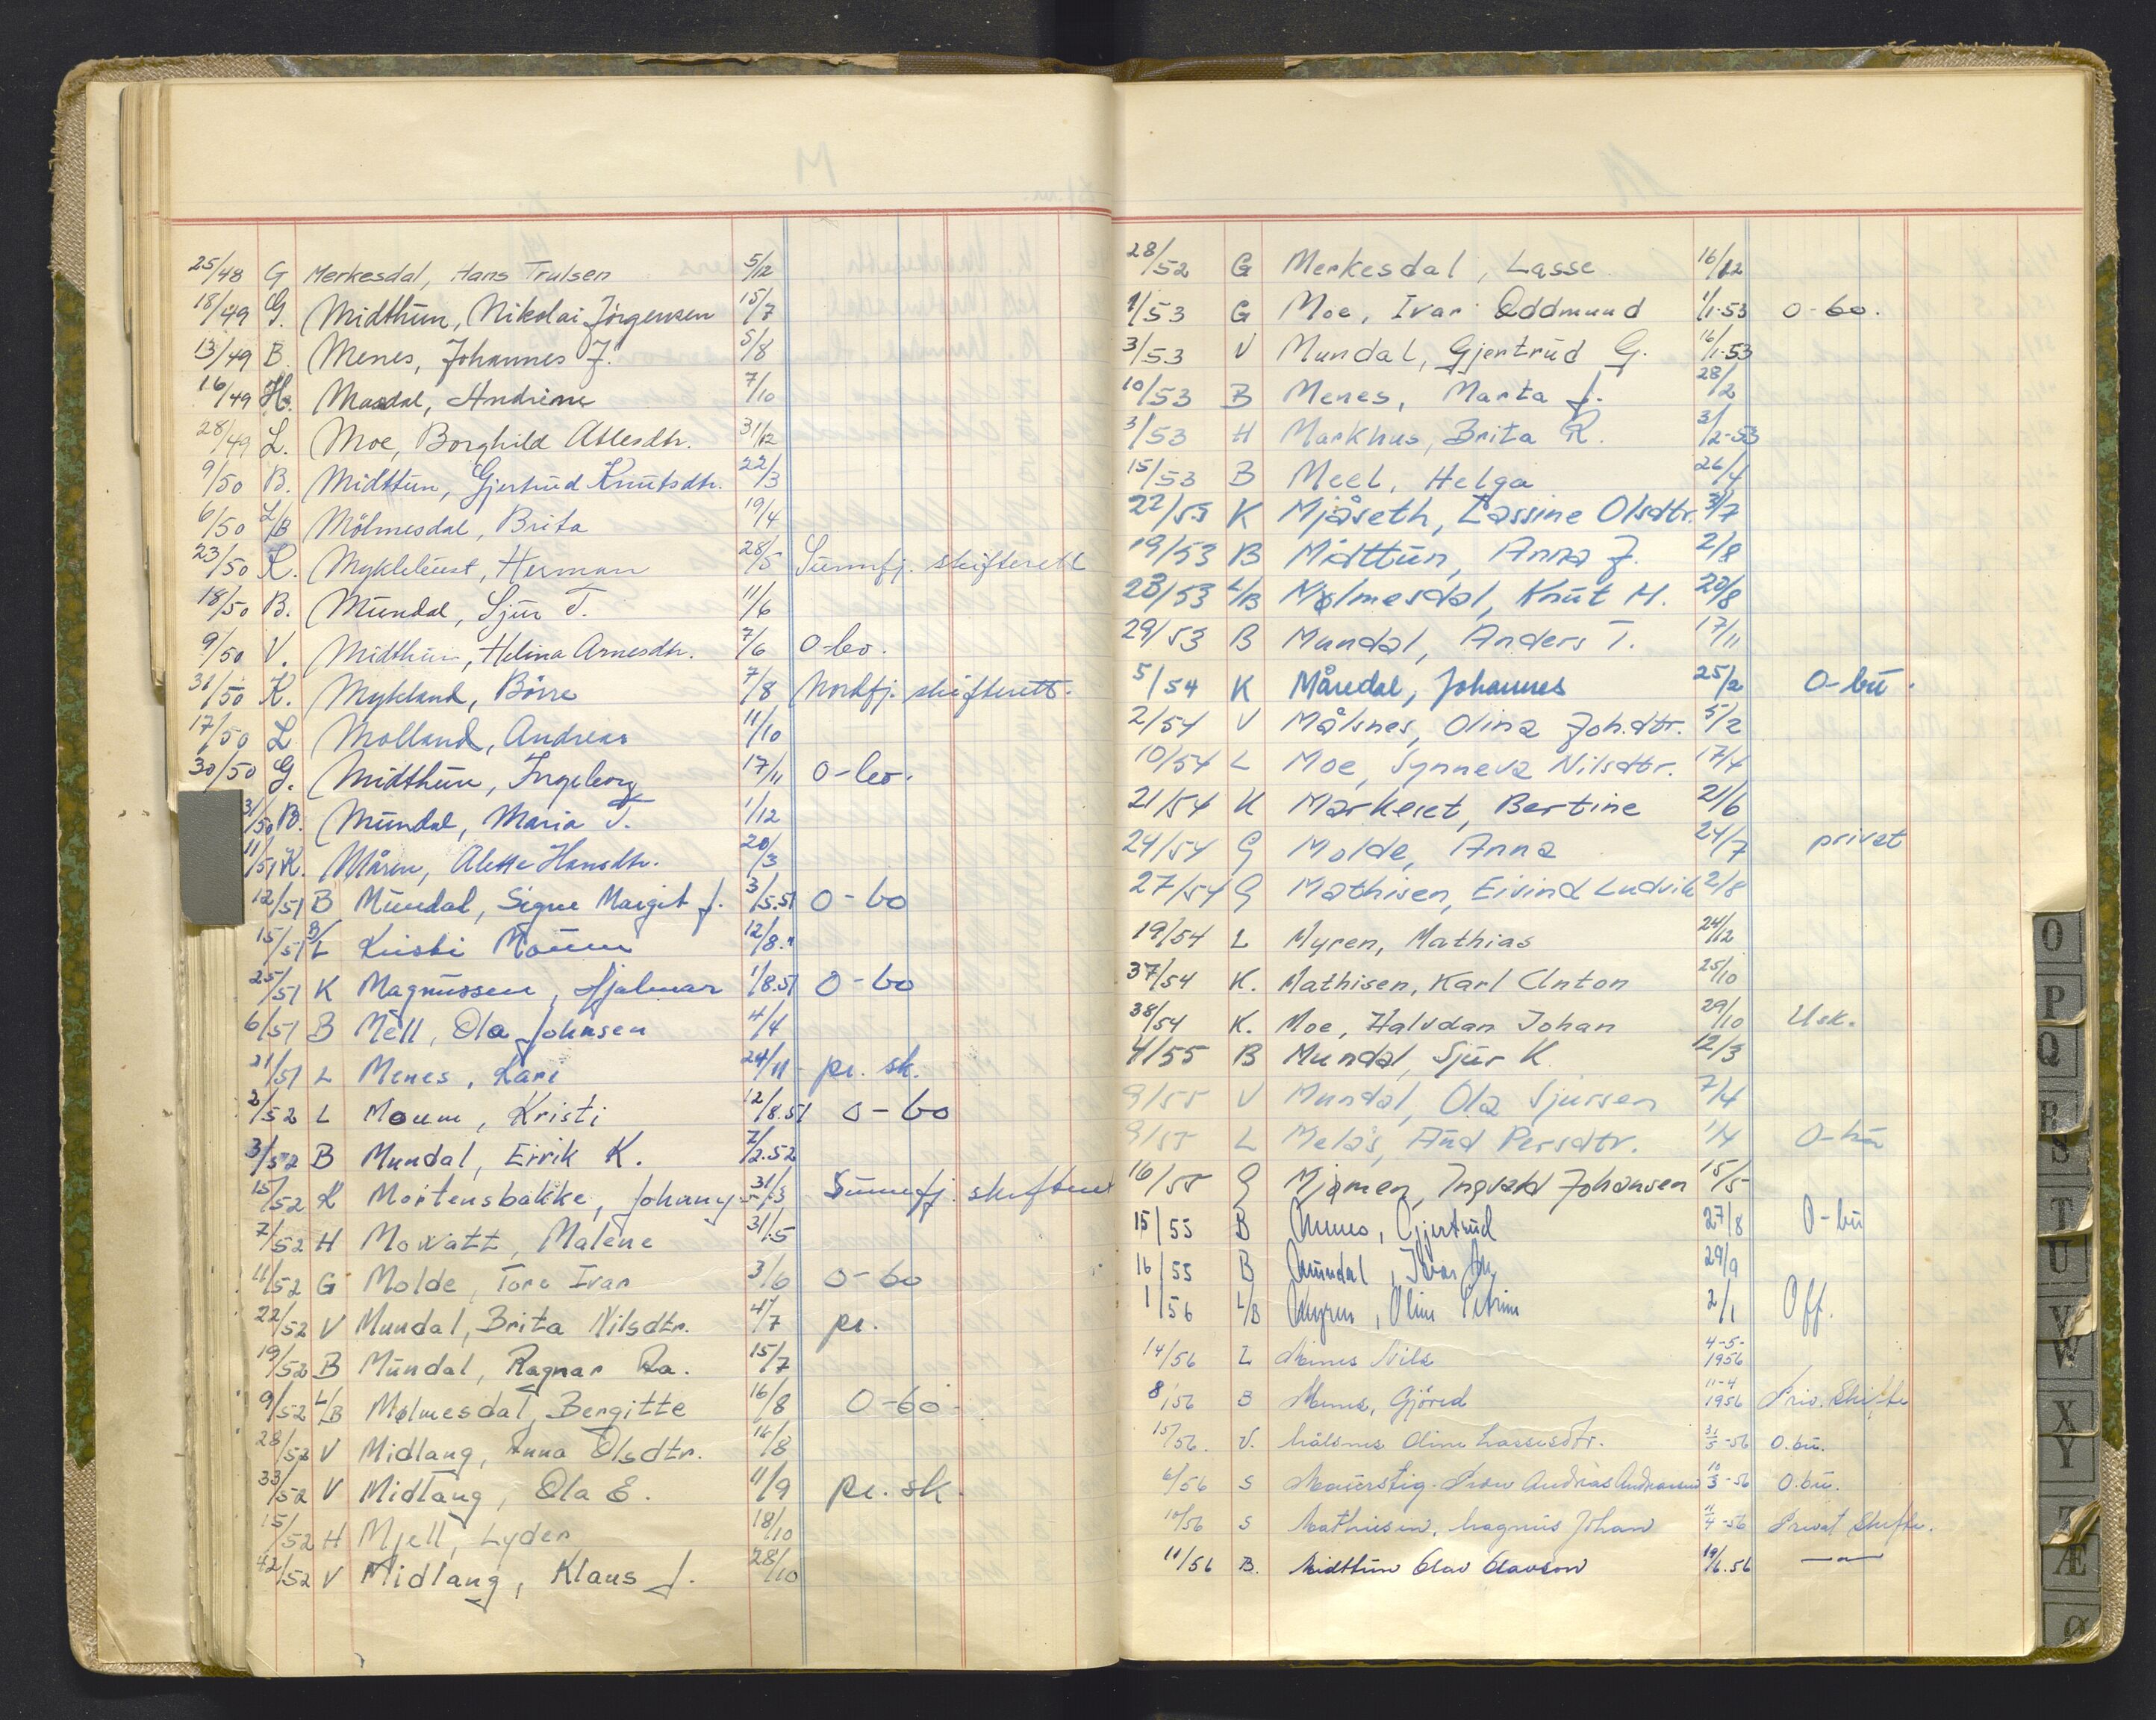 25/48 G Merkesdal, Hans Trulsen 5/12
18/49 G. Midthun, Nikolai Jörgensen 15/7
13/49 B. Menes, Johannes J. 5/8
16/49 H. Masdal, Andrine 7/10
28/49 L. Moe, Borghild Atlesdtr. 31/12
9/50 B. Midttun, Gjertrud Knutsdtr. 22/3
6/50 L/B Mölmesdal, Brita 19/4
23/50 K. Myklebust, Herman 28/5 Sunnfj. skifterett
18/50 B. Mundal, Sjur T. 11/6
9/50 V. Midthun, Helina Arnesdtr. 7/6 O-bo.
31/50 K. Mykland, Börre 7/8 Nordfj. skifterett.
17/50 L Molland, Andreas 11/10
30/50 G. Midthun, Ingeborg 17/11 O-bo.
31/50 B. Mundal, Maria T. 1/12
11/51 K. Måren, Alette Hansdtr. 20/3
12/51 B Mundal, Signe Margit J. 3/5.51 O-bo
15/51 B/L Kristi Moum 12/8."
25/51 K Magnussen, Hjalmar 1/8.51 O-bo
6/51 B Mell, Ola Johnsen 4/4
21/51 L Menes, Kari 24/11 pr. sk.
2/52 L Moum, Kristi 12/8.51 O-bo
3/52 B Mundal, Eirik K. 7/2.52
15/52 K Mortensbakke, Johanny 31/3 Sunnfj. skifterett
7/52 H Mowatt, Malene 31/5
11/52 G Molde, Tore Ivar 3/6 O-bo
22/52 V Mundal, Brita Nilsdtr. 4/7 pr.
19/52 B Mundal, Ragnar Ra. 15/7
9/52 L/B Mølmesdal, Bergitte 16/8 O-bo
28/52 V Midlang, Anna Olsdtr. 16/8
33/52 V Midlang, Ola E. 11/9 pr. sk.
15/52 H Mjell, Lyder 18/10
42/52 V Midlang, Klaus J. 28/10
28/52 G Merkesdal, Lasse 16/12
1/53 G Moe, Ivar Oddmund 1/1-53 O-bo.
3/53 V Mundal, Gjertrud G. 16/1-53
10/53 B Menes, Marta J. 28/2
3/53 H Markhus, Brita R. 3/2-53
15/53 B Meel, Helga 26/4
22/53 K Mjåseth, Lassine Olsdtr. 3/7
19/53 B Midttun, Anna J. 2/8
23/53 L/B Mølmesdal, Knut M. 20/8
29/53 B Mundal, Anders T. 17/11
5/54 K Måredal, Johannes 25/2 O-bu.
2/54 V Målsnes, Olina Joh.dtr. 5/2
10/54 L Moe, Synneva Nilsdtr. 17/4
21/54 K Markeset, Bertine 21/6
24/54 G Molde, Anna 24/7 privat
27/54 G Mathisen, Eivind Ludvik 2/8
19/54 L Myren, Mathias 24/12
37/54 K. Mathisen, Karl Anton 25/10
38/54 K. Moe, Halvdan Johan 29/10 Usk.
4/55 B Mundal, Sjur K 12/3
9/55 V Mundal, Ola Sjursen 7/4
9/55 L Melås, Aud Persdtr. 1/4 O-bu
16/55 G Mjømen, Ingvald Johansen 15/5
15/55 B Menes, Gjertrud 27/8 O-bu
16/55 B Mundal, Ivar 29/9
1/56 L/B Myren, Oline Petrine 2/1 Off.
14/56 L Menes Nils 4-5-1956
8/56 B Menes, Gjörid 11-4 1956 Priv. Skifte
15/56. V. Målsnes Oline Lassesdtr. 31/5-56 O.bu.
6/56 S Andreas Andreassen 10/3-56 O.bu.
10/56 S Mathiesen, Magnus Johan 11/4-56 Privat Skifte.
11/56 B. Midthun Olav Olavson 19/6.56 —"—
O
P
Q
R
S
T
U
V
W
X
Y
Z
Æ
Ø